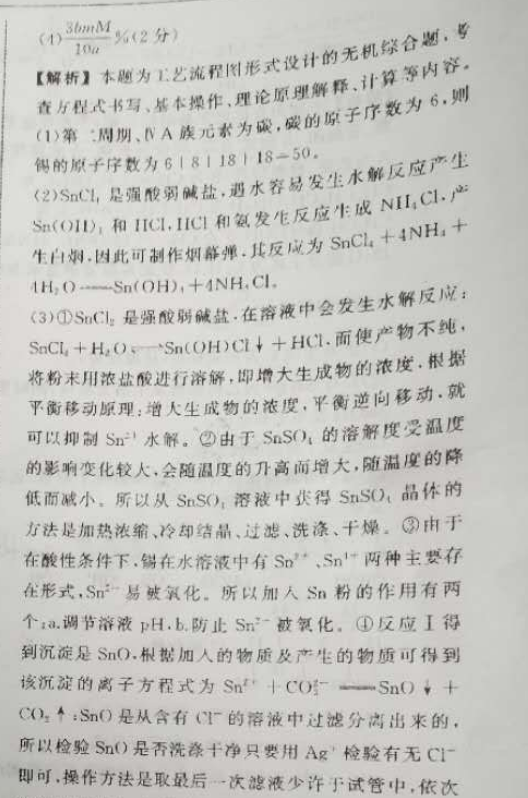 (4) 3bmM/10a %(2分)
【解析】本题为工艺流程图形式设计的无机综合题,考
查方程式书写、基本操作、理论原理解释、计算等内容。
(1)第二周期、ⅣA族元素为碳,碳的原子序数为6,则
锡的原子序数为6+8+18+18=50。
(2)SnCl₄是强酸弱碱盐,遇水容易发生水解反应产生
Sn(OH)₄和HCl,HCl和氨发生反应生成NH₄Cl,产
生白烟,因此可制作烟幕弹,其反应为SnCl₄+4NH₃+
4H₂O══Sn(OH)₄+4NH₄Cl。
(3)①SnCl₂是强酸弱碱盐,在溶液中会发生水解反应:
SnCl₂+H₂O⇌Sn(OH)Cl↓+HCl,而使产物不纯,
将粉末用浓盐酸进行溶解,即增大生成物的浓度,根据
平衡移动原理:增大生成物的浓度,平衡逆向移动,就
可以抑制Sn²⁺水解。②由于SnSO₄的溶解度受温度
的影响变化较大,会随温度的升高而增大,随温度的降
低而减小。所以从SnSO₄溶液中获得SnSO₄晶体的
方法是加热浓缩、冷却结晶、过滤、洗涤、干燥。③由于
在酸性条件下,锡在水溶液中有Sn²⁺、Sn⁴⁺两种主要存
在形式,Sn²⁺易被氧化。所以加入Sn粉的作用有两
个:a.调节溶液pH,b.防止Sn²⁺被氧化。④反应Ⅰ得
到沉淀是SnO,根据加入的物质及产生的物质可得到
该沉淀的离子方程式为Sn²⁺+CO₃²⁻══SnO↓+
CO₂↑;SnO是从含有Cl⁻的溶液中过滤分离出来的,
所以检验SnO是否洗涤干净只要用Ag⁺检验有无Cl⁻
即可,操作方法是取最后一次滤液少许于试管中,依次